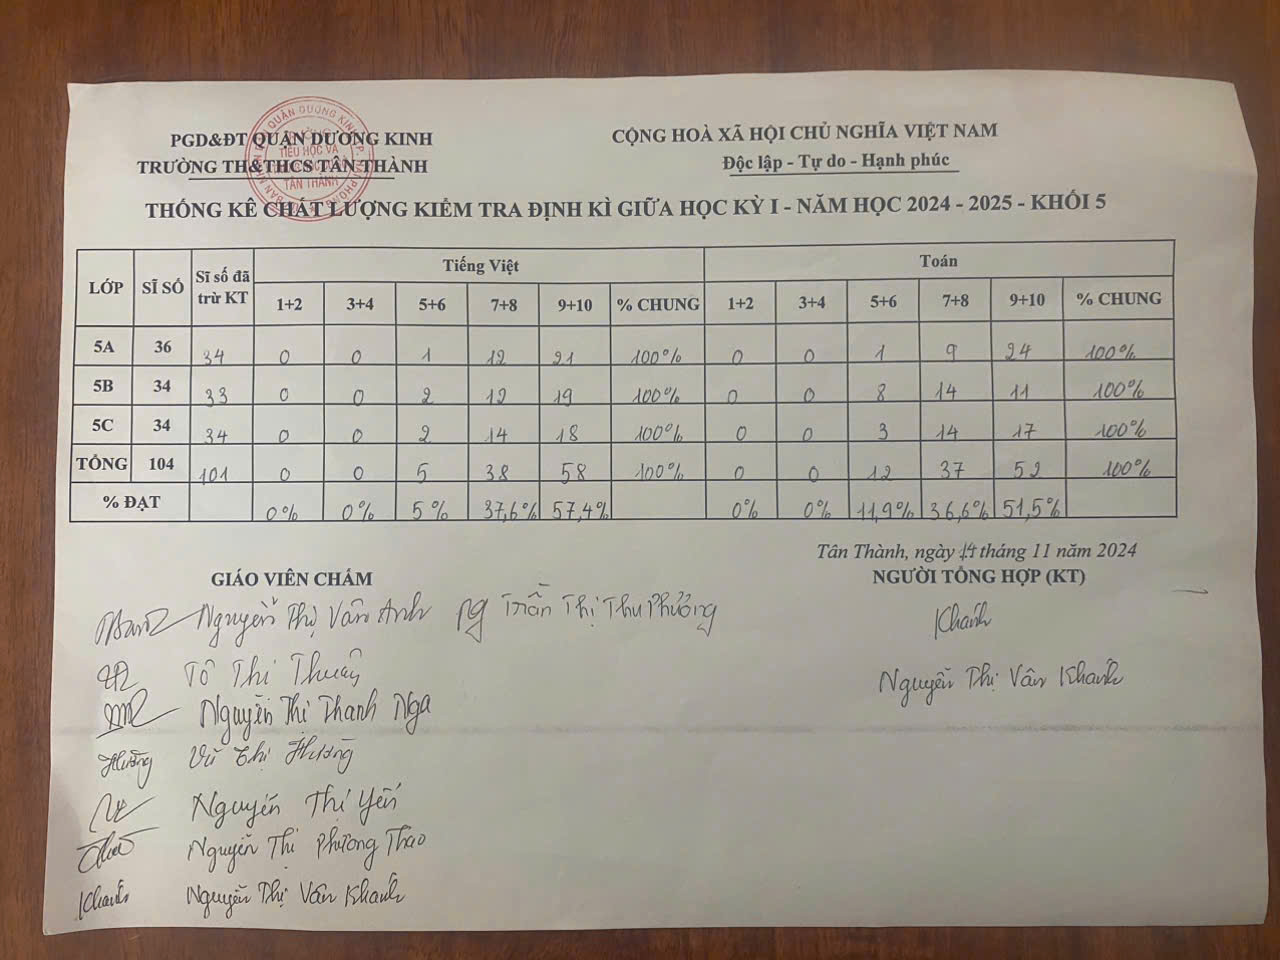 PGD&ĐT QUẬN DƯƠNG KINH
TRƯỜNG TH&THCS TÂN THÀNH
CỘNG HOÀ XÃ HỘI CHỦ NGHĨA VIỆT NAM
Độc lập - Tự do - Hạnh phúc
TIỂU HỌC VÀ
TÂN THÀNH
THỐNG KÊ CHẤT LƯỢNG KIỂM TRA ĐỊNH KÌ GIỮA HỌC KỲ I - NĂM HỌC 2024 - 2025 - KHỐI 5
LỚP SĨ SỐ Sĩ số đã trừ KT Tiếng Việt Toán
1+2 3+4 5+6 7+8 9+10 % CHUNG 1+2 3+4 5+6 7+8 9+10 % CHUNG
5A 36 34 0 0 1 12 21 100% 0 0 1 9 24 100%
5B 34 33 0 0 2 12 19 100% 0 0 8 14 11 100%
5C 34 34 0 0 2 14 18 100% 0 0 3 14 17 100%
TỔNG 104 101 0 0 5 38 58 100% 0 0 12 37 52 100%
% ĐẠT 0% 0% 5% 37,6% 57,4% 0% 0% 11,9% 36,6% 51,5%
Tân Thành, ngày 14 tháng 11 năm 2024
GIÁO VIÊN CHẤM
NGƯỜI TỔNG HỢP (KT)
Nguyễn Thị Vân Anh Trần Thị Thu Phương
Khánh
Tô Thị Thuỷ
Nguyễn Thị Vân Khánh
Nguyễn Thị Thanh Nga
Hường Vũ Thị Hường
Nguyễn Thị Yến
Nguyễn Thị Phương Thảo
Khánh Nguyễn Thị Vân Khánh